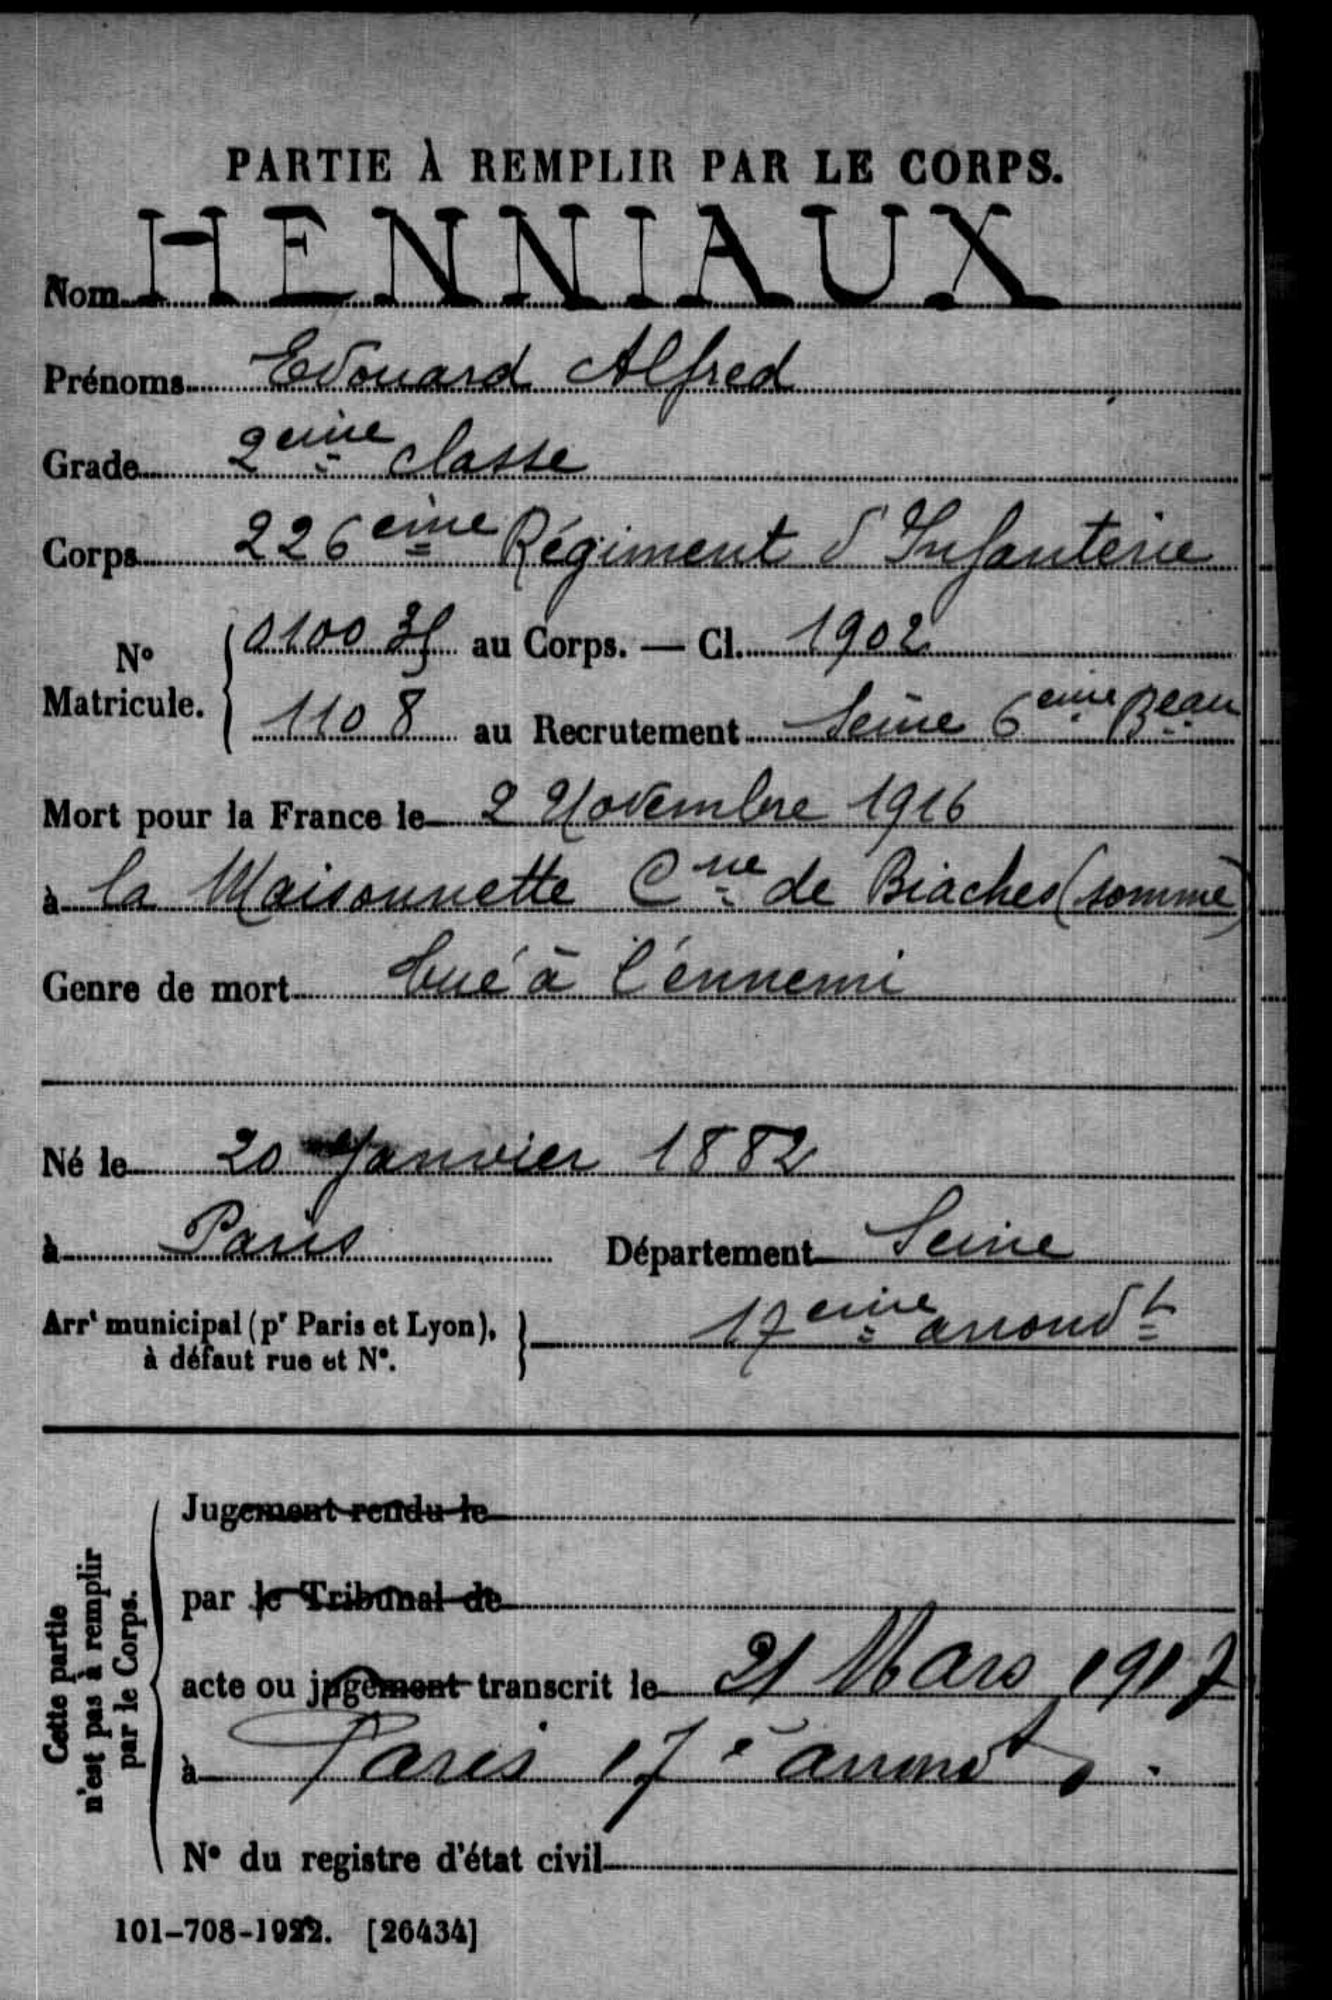 PARTIE À REMPLIR PAR LE CORPS.
Nom HENNIAUX
Prénoms Edouard Alfred
Grade 2eme classe
Corps 226eme Régiment d'Infanterie
N° Matricule. { 0100 au Corps. — Cl. 1902
1108 au Recrutement Seine 6eme Beau
Mort pour la France le 2 Novembre 1916
à la Maisonnette Cne de Biaches (somme)
Genre de mort tué à l'ennemi
Né le 20 Janvier 1882
à Paris Département Seine
Arrt municipal (pr Paris et Lyon), } 17eme arrondt
à défaut rue et N°.
Cette partie n'est pas à remplir par le Corps.
Jugement rendu le
par le Tribunal de
acte ou jugement transcrit le 21 Mars 1917
à Paris 17e arrondt
N° du registre d'état civil
101-708-1922. [26434]